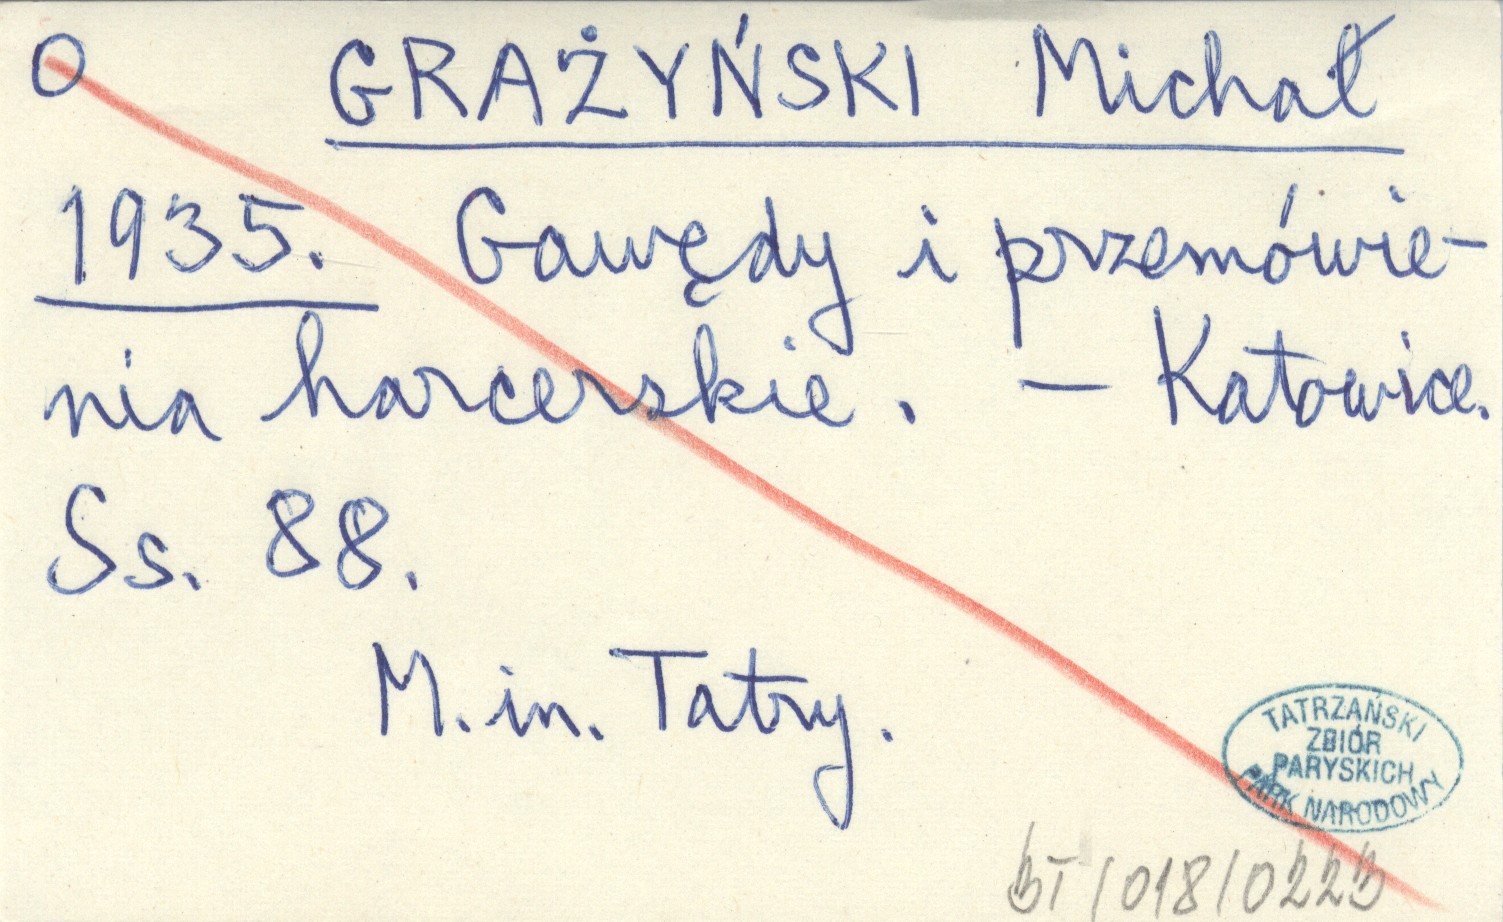 O GRAŻYŃSKI Michał
1935. Gawędy i przemówie-
nia harcerskie. – Katowice.
Ss. 88.
M. in. Tatry.
TATRZAŃSKI
ZBIÓR
PARYSKICH
PARK NARODOWY
BT/018/0223